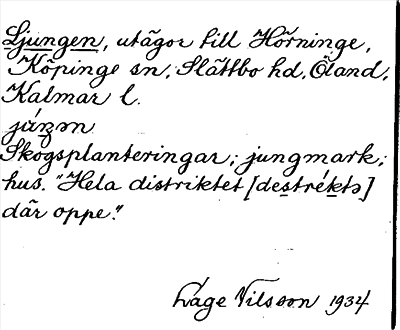 Ljungen, utägor till Hörninge,
Köpinge sn, Slättbo hd, Öland,
Kalmar l.
Skogsplanteringar; jungmark;
hus. "Hela distriktet [destréktə]
där oppe."
Åage Nilsson 1934